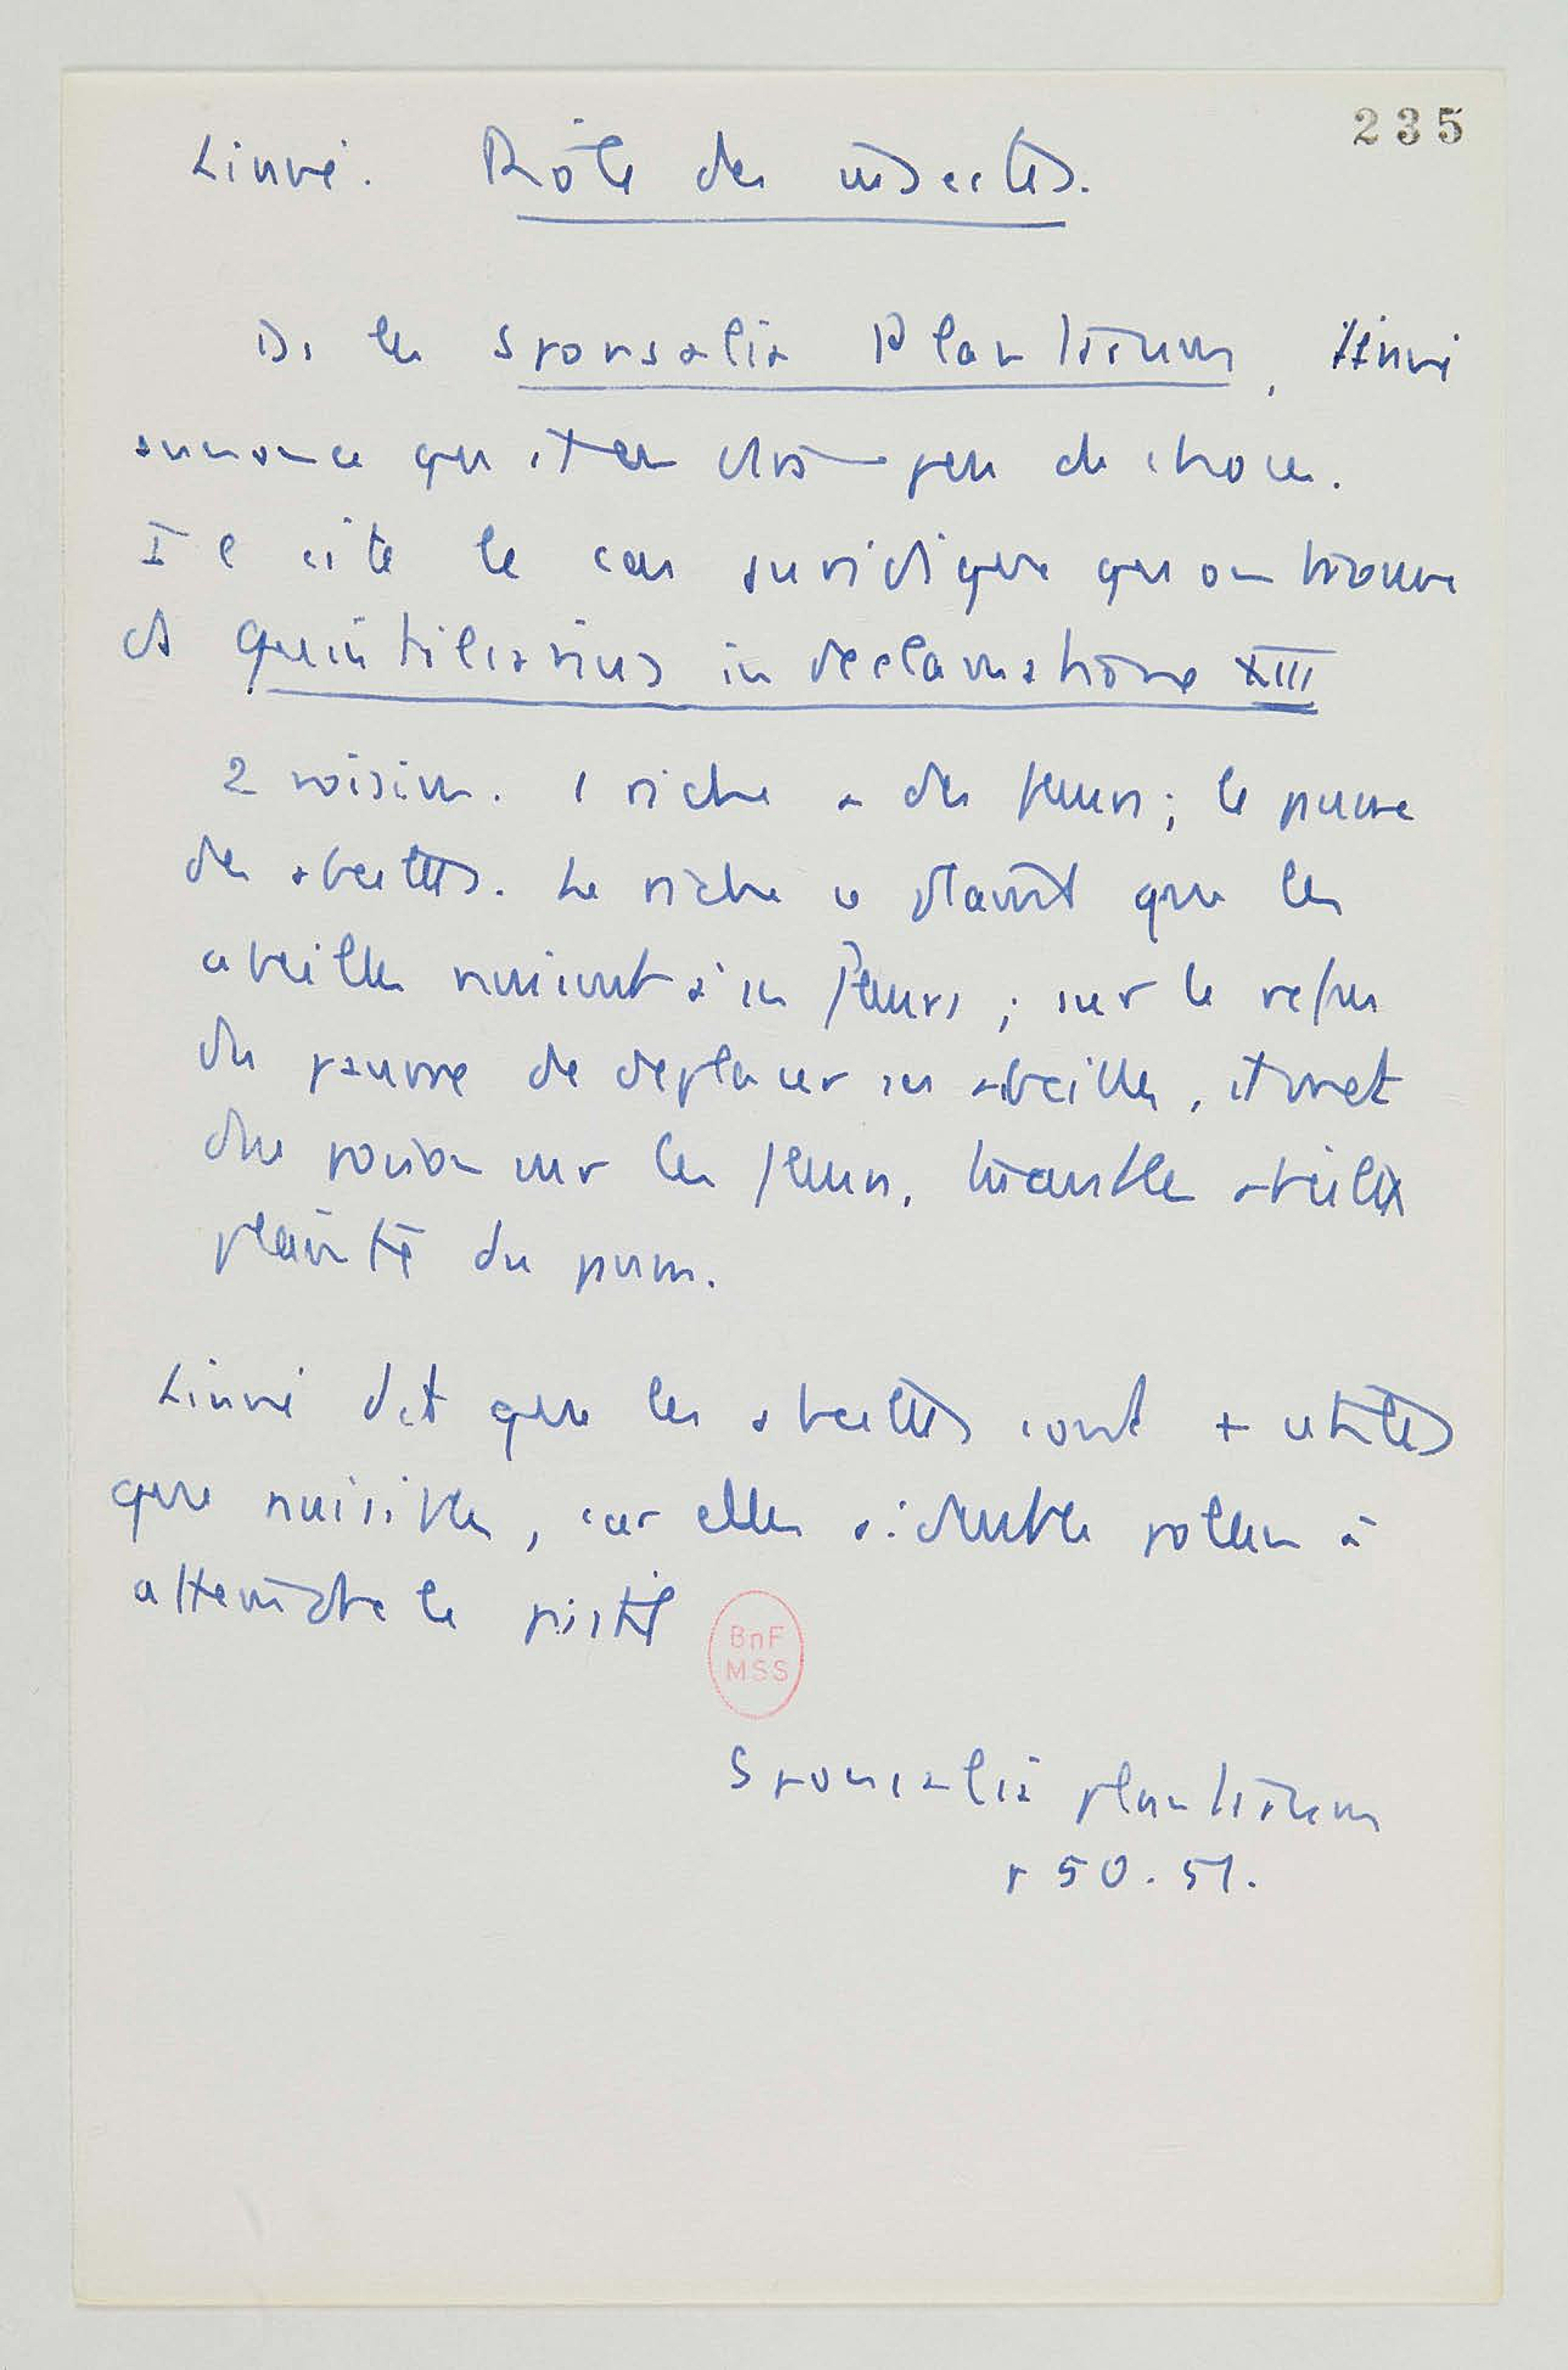 235
Linné. Rôle des insectes.
Ds les Sponsalia Plantarum, Linné
annonce qu'il en dira peu de chose.
Il cite le cas juridique qu'on trouve
ds Quintilianus in declamatione XIII
2 voisins. 1 riche a des fleurs ; le pauvre
des abeilles. Le riche se plaint que les
abeilles nuisent à ses fleurs ; sur le refus
du pauvre de déplacer ses abeilles, il met
du poison sur les fleurs,
plainte du pauvre.
Linné dit que les abeilles sont + utiles
que nuisibles, car elles aident le pollen à
atteindre le pistil
BnF
MSS
Sponsalia plantarum
p 50. 51.